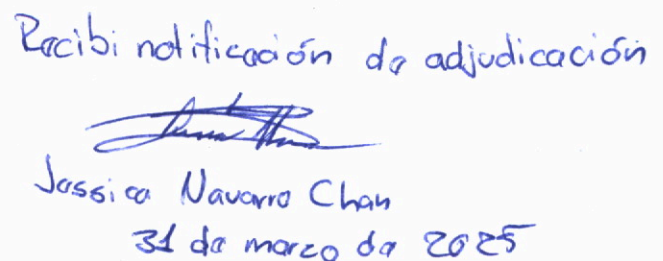 Recibi notificación de adjudicación
Jessica Navarro Chan
31 de marzo de 2025